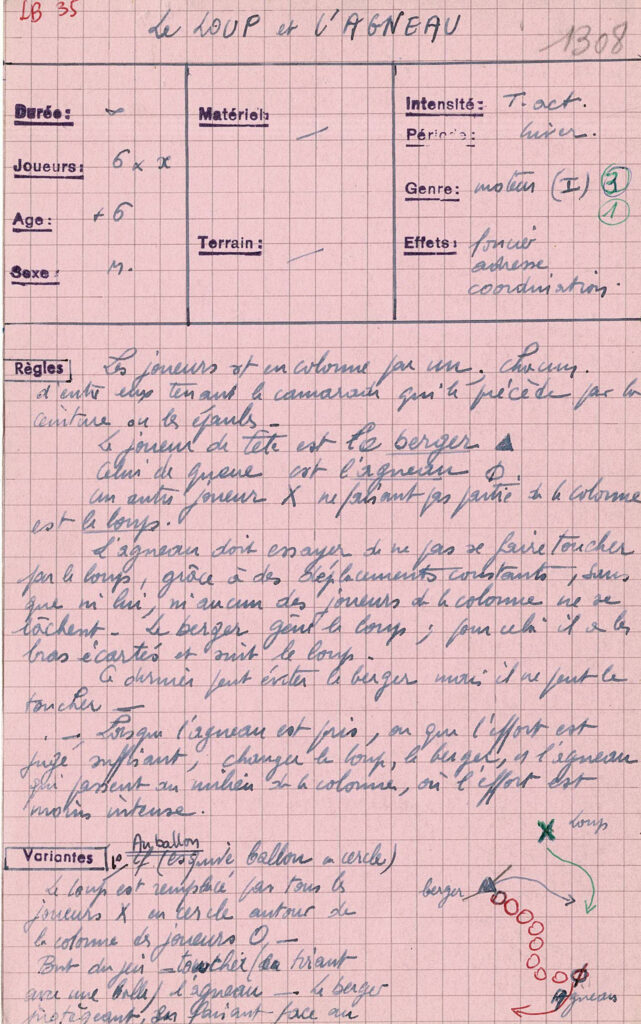 LB 35
Le LOUP et L'AGNEAU
1308
Durée: ∞
Joueurs: 6 x x
Age: + 6
Sexe: m.
Matériel: —
Terrain: —
Intensité: T. act.
Période: hiver.
Genre: moteur (I) 3
1
Effets: foncier
adresse
coordination.
Règles Les joueurs st en colonne par un, chacun
d'entre eux tenant le camarade qui le précède par la
ceinture ou les épaules -
Le joueur de tête est le berger ▲
Celui de queue est l'agneau ϕ.
Un autre joueur X ne faisant pas partie de la colonne
est le loup.
L'agneau doit essayer de ne pas se faire toucher
par le loup, grâce à des déplacements constants, sans
que ni lui, ni aucun des joueurs de la colonne ne se
lâchent - Le berger gêne le loup ; pour cela il a les
bras écartés et suit le loup.
Ce dernier peut éviter le berger mais il ne peut le
toucher —
- Lorsque l'agneau est pris, ou que l'effort est
jugé suffisant, changer le loup, le berger, et l'agneau
qui passent au milieu de la colonne, où l'effort est
moins intense.
Au ballon
Variantes 1° (esquive ballon en cercle)
Le loup est remplacé par tous les
joueurs X en cercle autour de
la colonne des joueurs O, —
But du jeu - toucher en tirant
avec une balle l'agneau — Le berger
protégeant, en faisant face au
X Loup
berger
Agneau